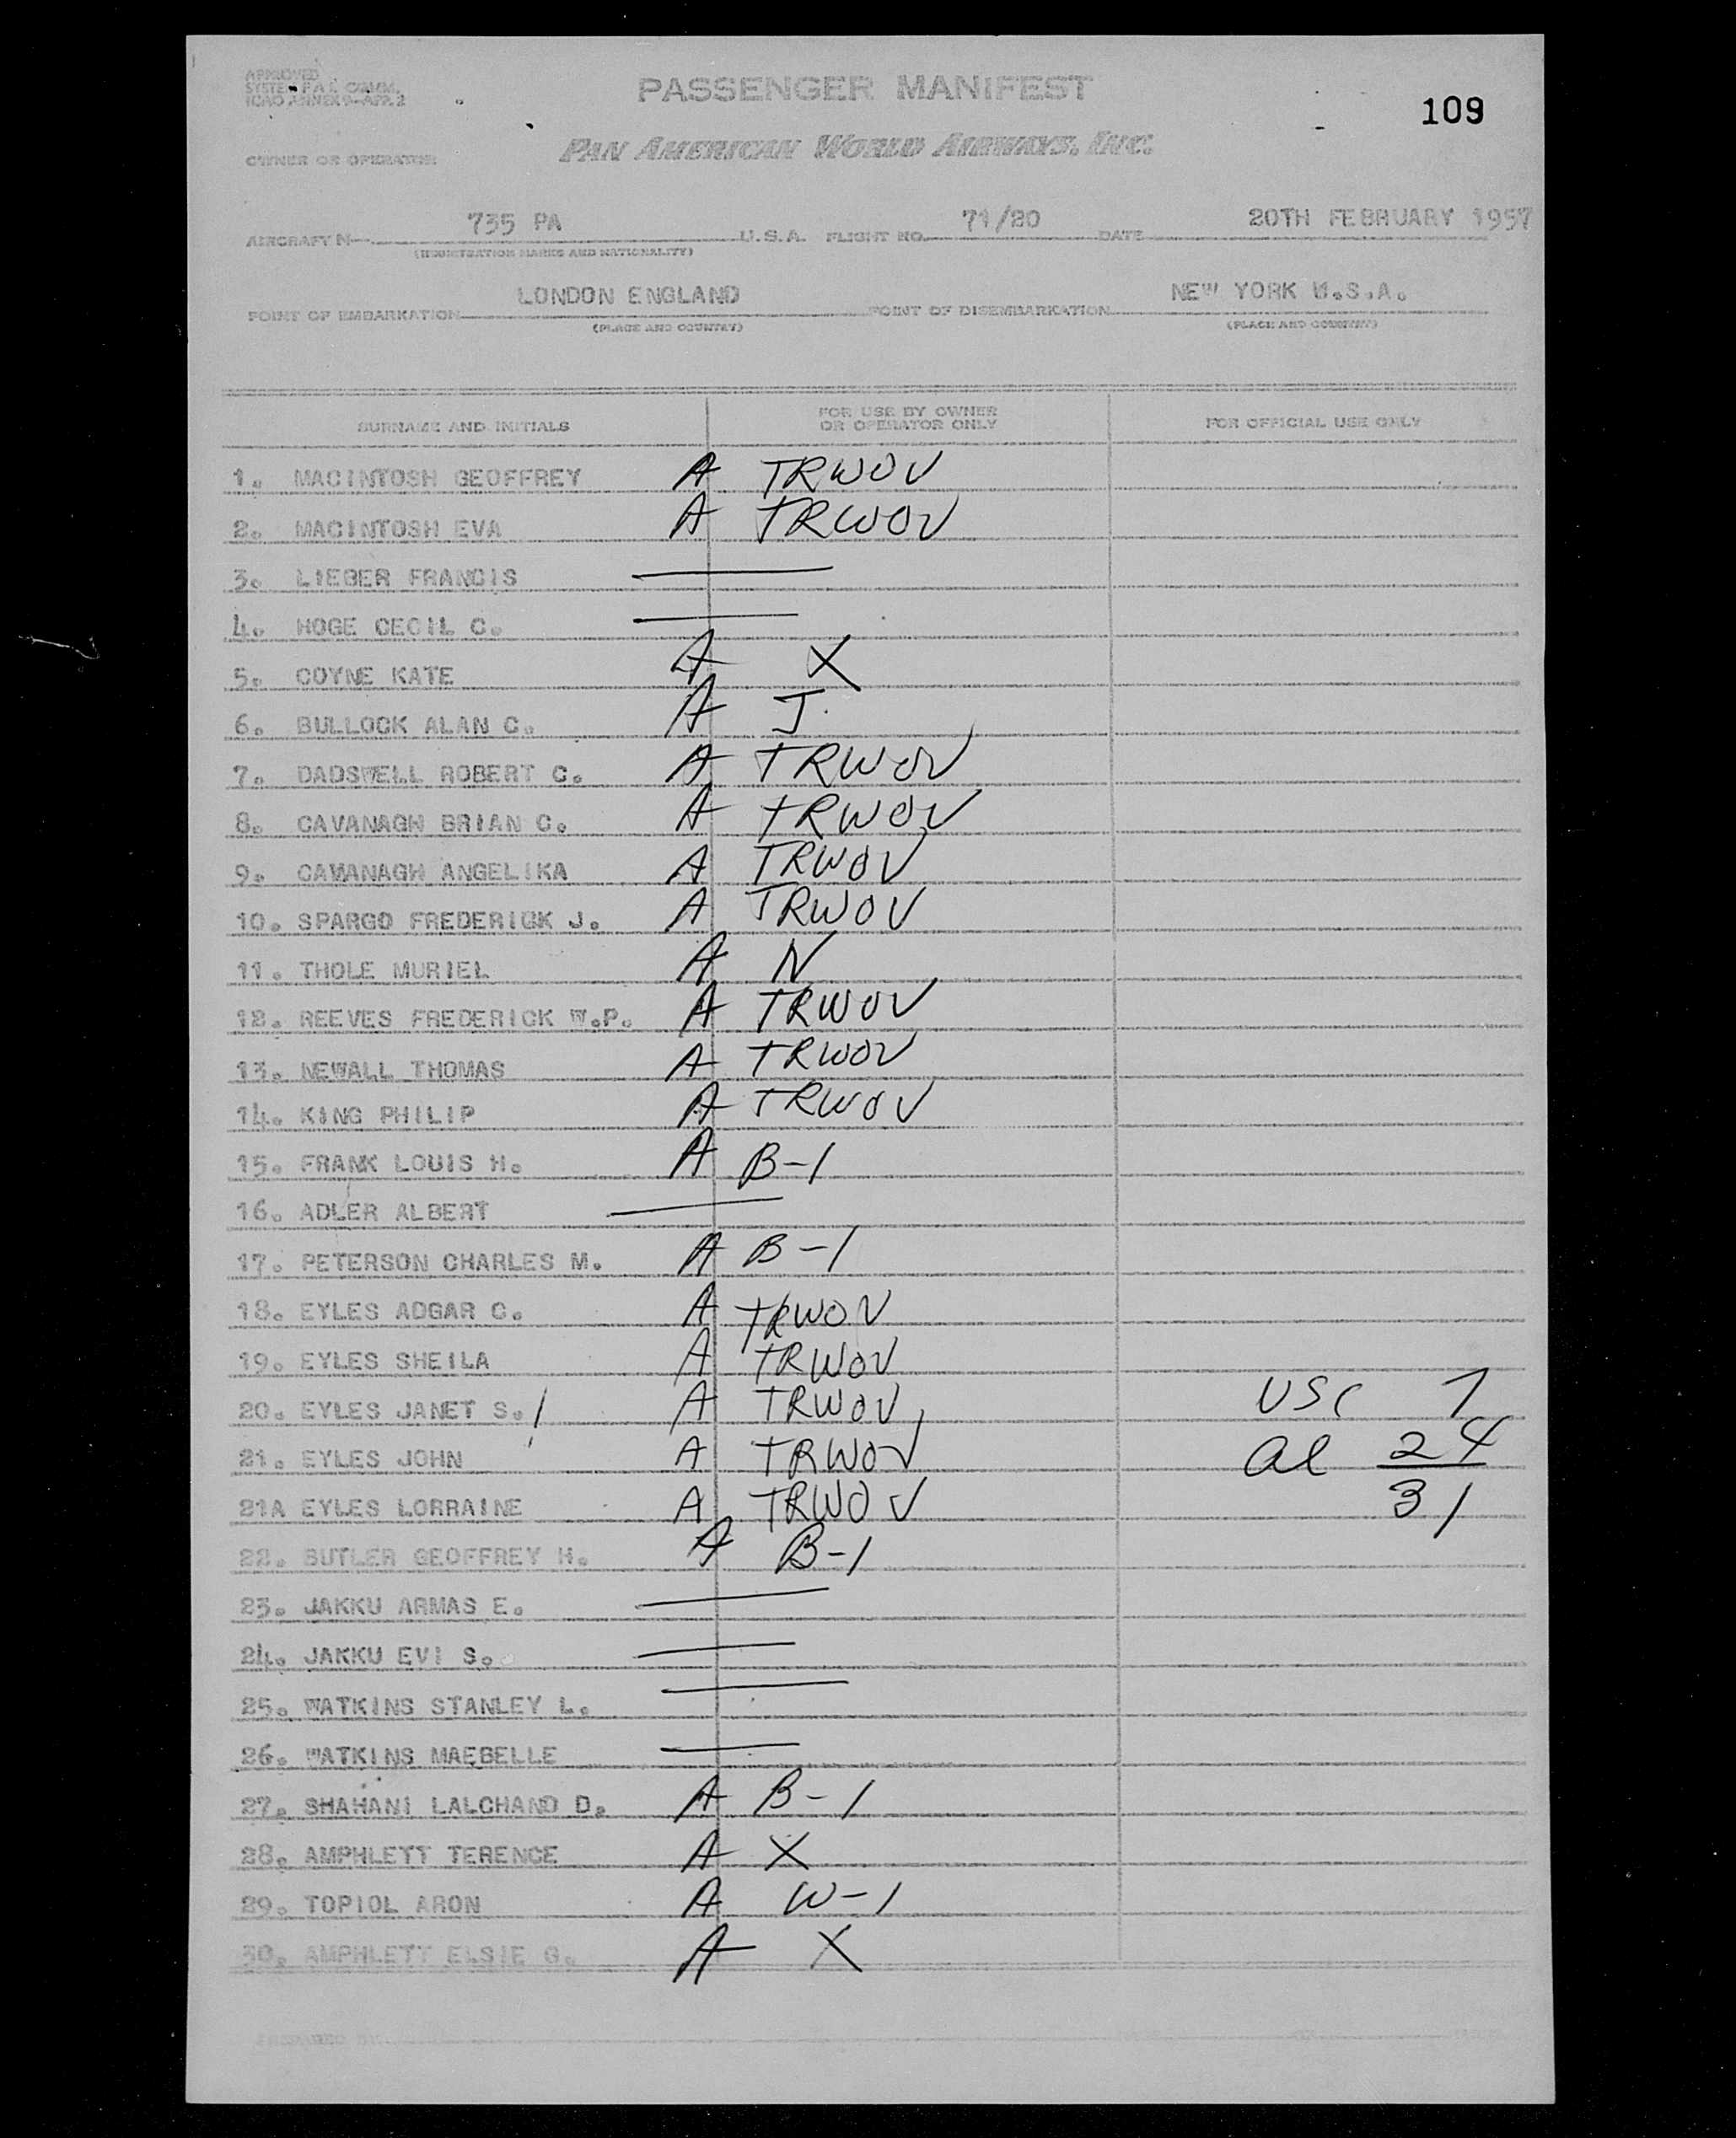 APPROVED
SYSTEM F.A.L COMM.
ICAO ANNEX 9-APP. 2
PASSENGER MANIFEST
109
OWNER OR OPERATOR
PAN AMERICAN WORLD AIRWAYS, INC.
AIRCRAFT N- 735 PA U.S.A. FLIGHT NO. 71/20 DATE 20TH FEBRUARY 1957
(REGISTRATION MARKS AND NATIONALITY)
POINT OF EMBARKATION LONDON ENGLAND POINT OF DISEMBARKATION NEW YORK U.S.A.
(PLACE AND COUNTRY) (PLACE AND COUNTRY)
SURNAME AND INITIALS FOR USE BY OWNER OR OPERATOR ONLY FOR OFFICIAL USE ONLY
1. MACINTOSH GEOFFREY A TRWOV
2. MACINTOSH EVA A TRWOV
3. LIEBER FRANCIS
4. HOGE CECIL C.
5. COYNE KATE A X
6. BULLOCK ALAN C. A J
7. DADSWELL ROBERT C. A TRWOV
8. CAVANAGH BRIAN C. A TRWOV
9. CAVANAGH ANGELIKA A TRWOV
10. SPARGO FREDERICK J. A TRWOV
11. THOLE MURIEL A N
12. REEVES FREDERICK W.P. A TRWOV
13. NEWALL THOMAS A TRWOV
14. KING PHILIP A TRWOV
15. FRANK LOUIS H. A B-1
16. ADLER ALBERT
17. PETERSON CHARLES M. A B-1
18. EYLES ADGAR C. A TRWOV
19. EYLES SHEILA A TRWOV
20. EYLES JANET S. A TRWOV USC 7
21. EYLES JOHN A TRWOV al 24
21A EYLES LORRAINE A TRWOV 31
22. BUTLER GEOFFREY H. A B-1
23. JAKKU ARMAS E.
24. JAKKU EVI S.
25. WATKINS STANLEY L.
26. WATKINS MAEBELLE
27. SHAHANI LALCHAND D. A B-1
28. AMPHLETT TERENCE A X
29. TOPIOL ARON A W-1
30. AMPHLETT ELSIE G. A X